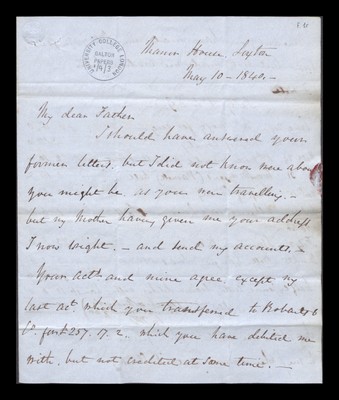 UNIVERSITY COLLEGE LONDON
GALTON
PAPERS
Manor House,
May 10 - 1840 -
My dear Father
I should have answered your
former letters, but I did not know where about
you might be as you were travelling. -
but my Mother having given me your address
I now wright. - and send my accounts. -
Your actt and mine agree, except my
last act. which you transferred to &
Co. for £257. 17. 2. which you have debited me
with, but not credited at same time. -